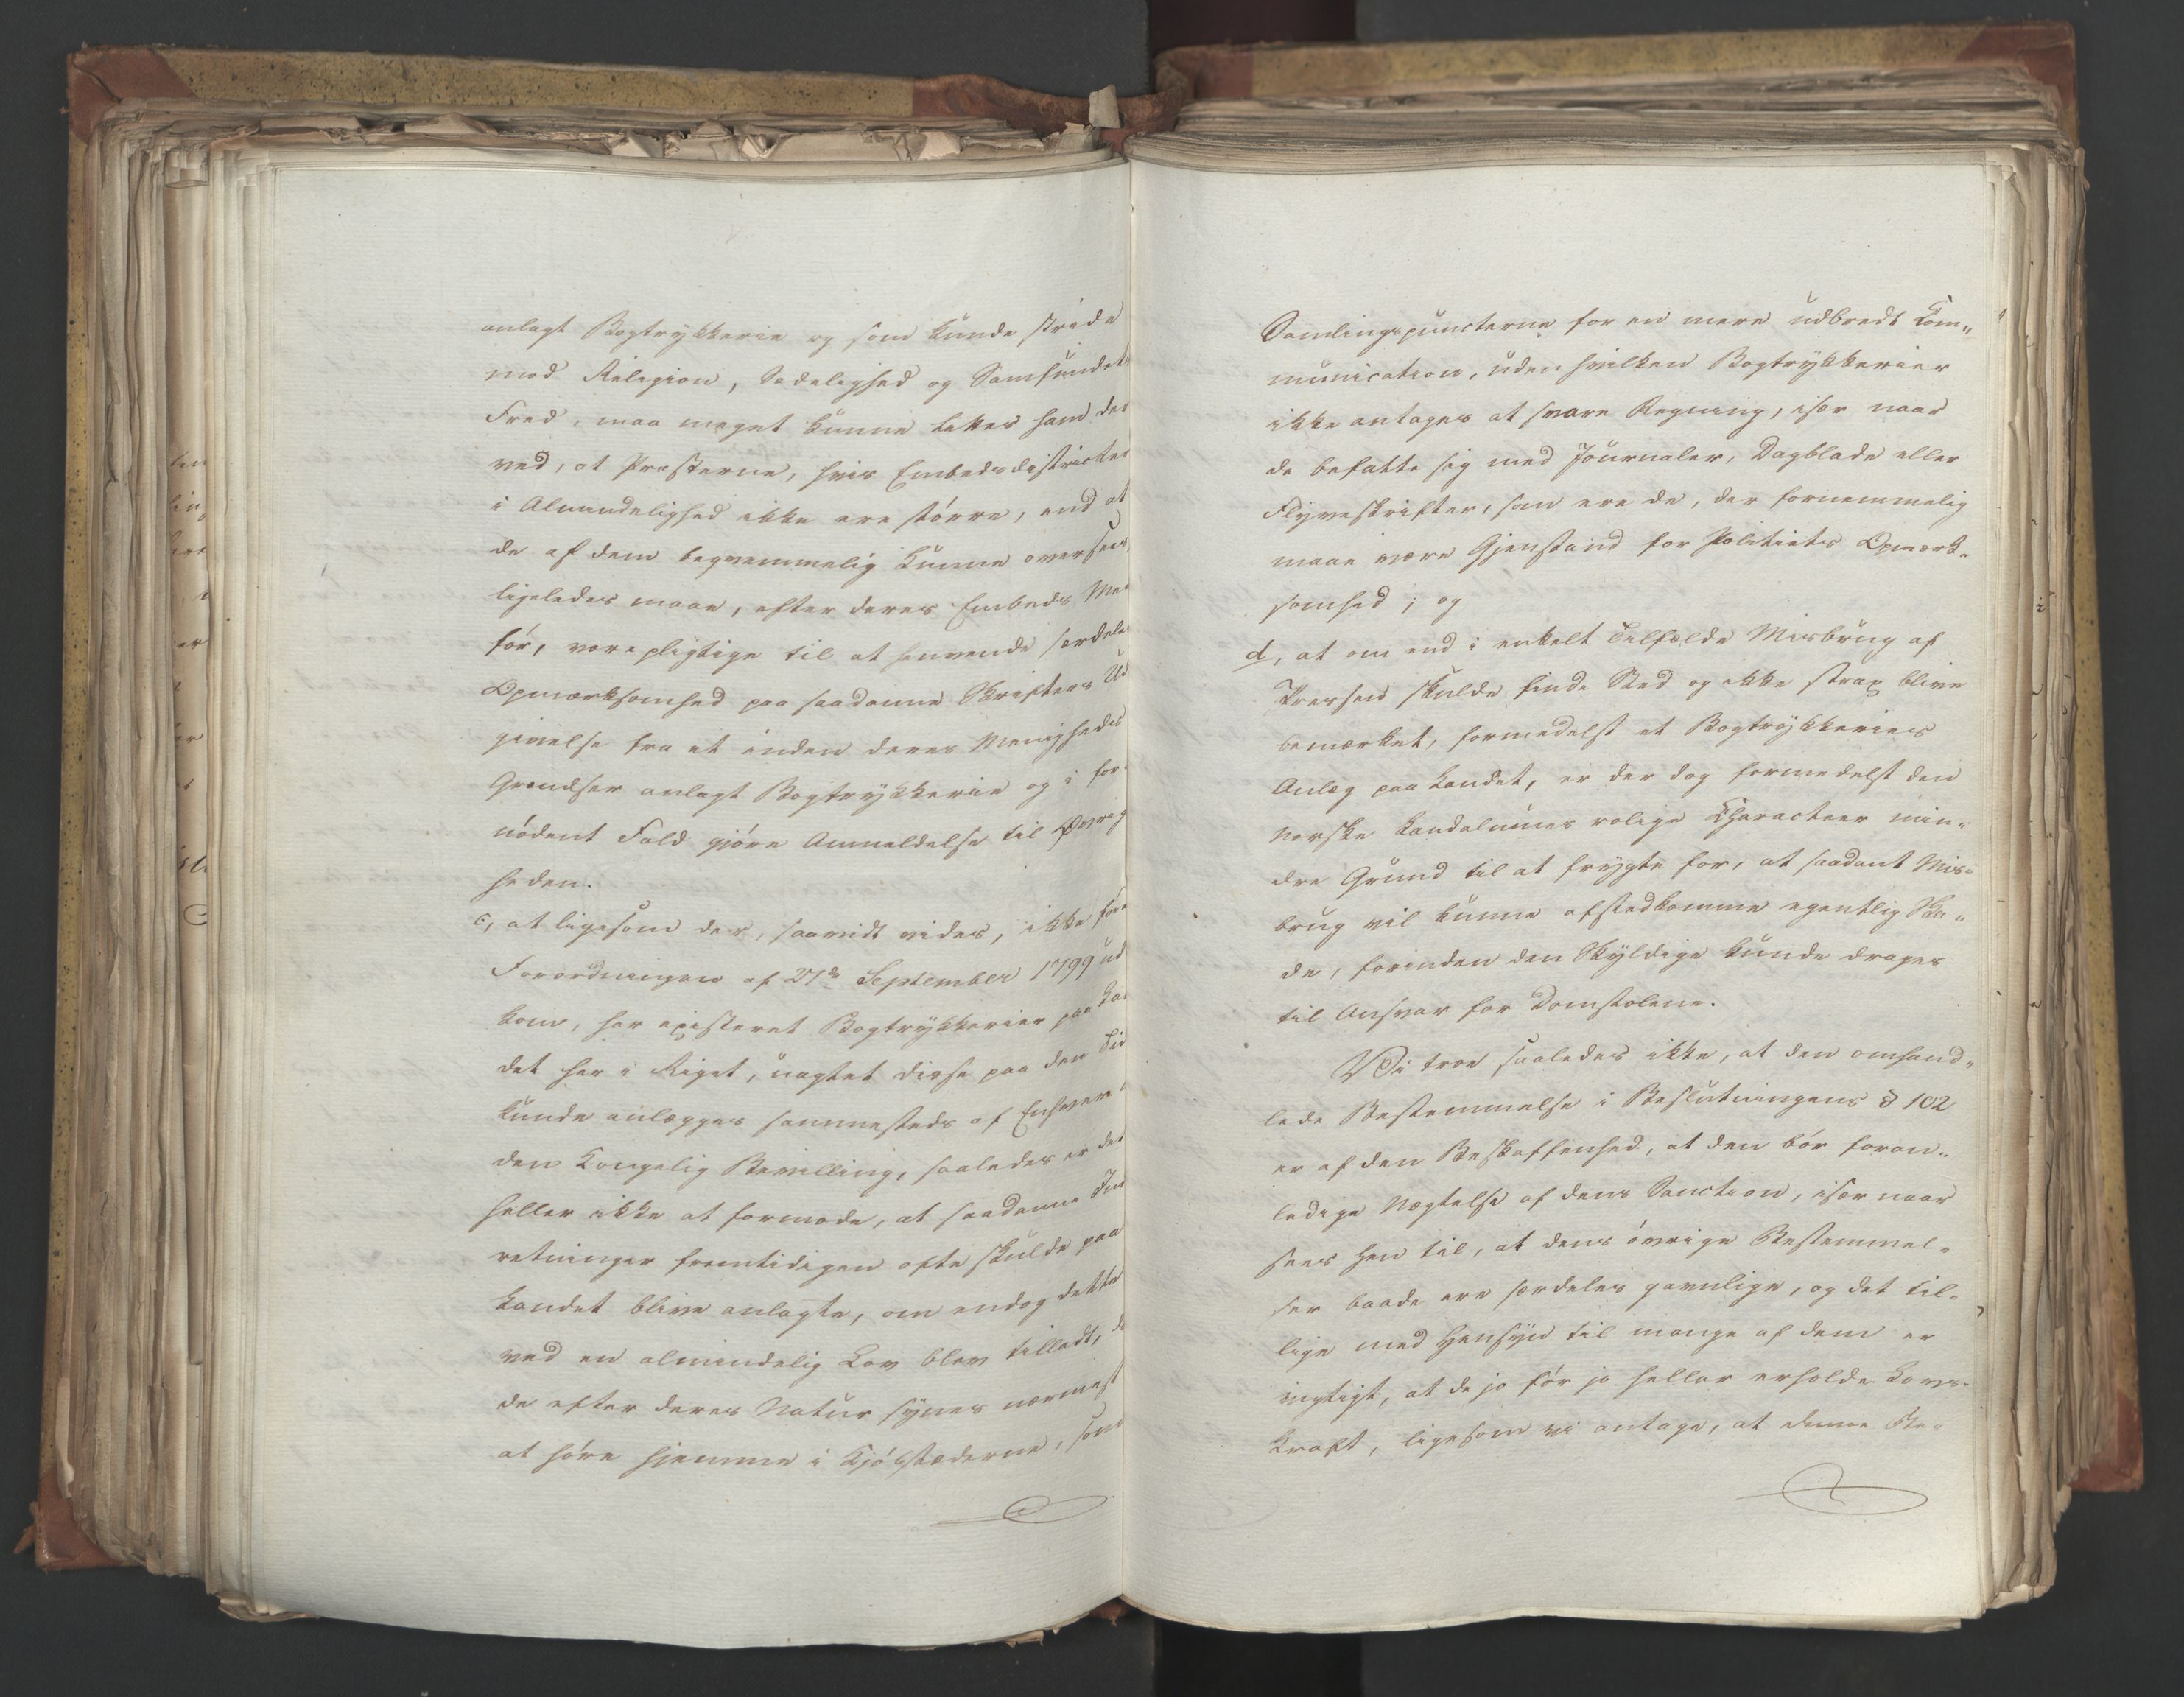 anlagt Bogtrykkerie og som kunde stride
mod Religion, Sædelighed og Samfundets
Fred, maa meget kunne lettes ham der
ved, at Præsterne, hvis Embedsdistricter
i Almindelighed ikke ere større, end at
de af dem beqvemmelig kunne oversees,
ligeledes maae, efter deres Embeds Med
før, være pligtige til at henvende særdeles
Opmærksomhed paa saadanne Skrifters Ud
givelse fra et inden deres Menigheders
Grændser anlagt Bogtrykkerie og i for
nødent Fald gjøre Anmeldelse til Øvrig
heden.
c, at ligesom der, saavidt vides, ikke før
Forordningen af 27de September 1799 ud
kom, har existeret Bogtrykkerier paa Lan
det her i Riget, uagtet disse paa den Tid
kunde anlægges sammesteds af Enhver
den Kongelig Bevilling, saaledes er det
heller ikke at formode, at saadanne Ind
retninger fremtidigen ofte skulde paa
Landet blive anlagte, om endog dette
ved en almindelig Lov blev tilladt, da
de efter deres Natur synes nærmest
at høre hjemme i Kjøbstæderne, som
Samlingspuncterne for en mere udbredt Com„
munication, uden hvilken Bogtrykkerier
ikke antages at svare Regning, især naar
de befatte sig med Journaler, Dagblade eller
Flyveskrifter, som ere de, der fornemmelig
maae være Gjenstand for Politiets Opmærk„
somhed; og
d, at om end i enkelt Tilfælde Misbrug af
Pressen skulde finde Sted og ikke strax blive
bemærket, formedelst et Bogtrykkeries
Anlæg paa Landet, er der dog formedelst den
norske Landalmues rolige Characteer min„
dre Grund til at frygte for, at saadant Mis„
brug vil kunne afstedkomme egentlig Ska„
de, forinden den Skyldige kunde drages
til Ansvar for Domstolene.
Vi troe saaledes ikke, at den omhand„
lede Bestemmelse i Beslutningens § 102
er af den Beskaffenhed, at den bør foran„
ledige Nægtelse af dens Sanction, især naar
sees hen til, at dens øvrige Bestemmel„
ser baade ere særdeles gavnlige, og det til„
lige med Hensyn til mange af dem er
vigtigt, at de jo før jo heller erholde Lovs„
kraft, ligesom vi antage, at denne Be„